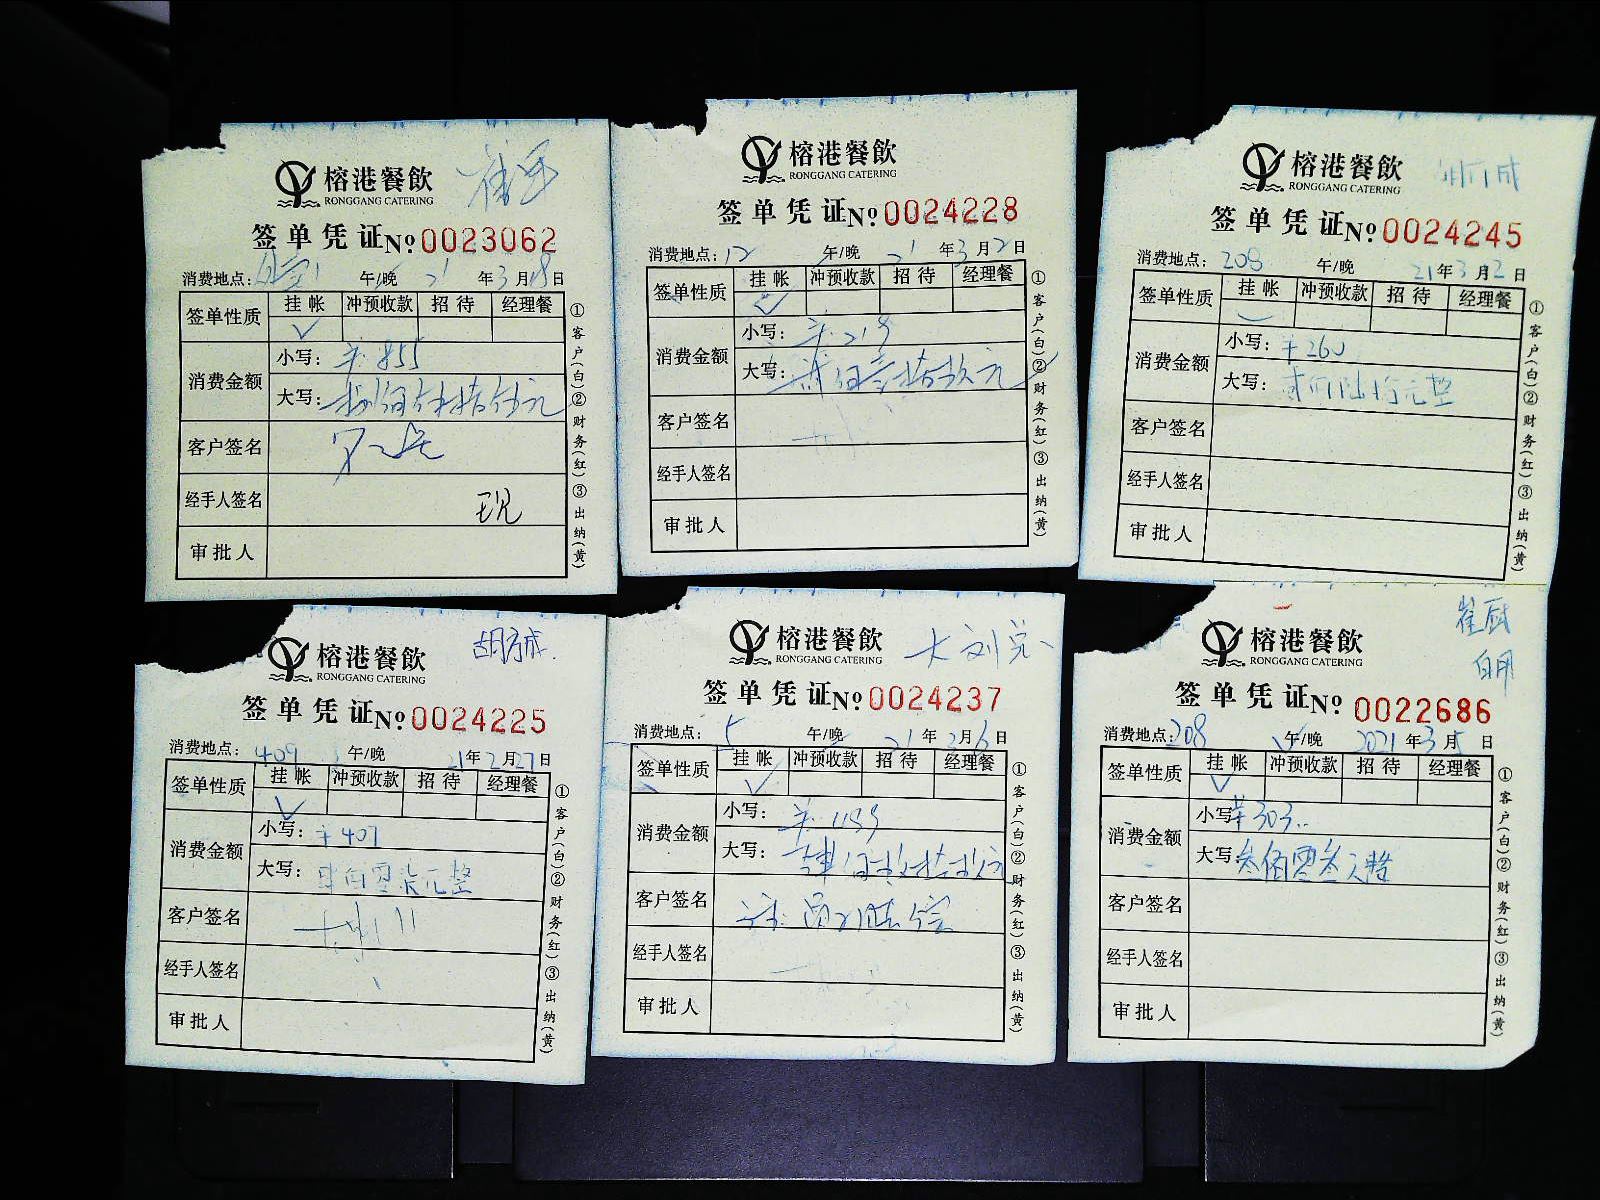 榕港餐飲
RONGGANG CATERING
签单凭证 №0023062
消费地点： 午/晚 21年3月18日
签单性质 挂帐 冲预收款 招待 经理餐
✓
消费金额
小写：¥:855
大写：捌佰伍拾伍元
客户签名
经手人签名
审批人
①客户(白)②财务(红)③出纳(黄)
榕港餐飲
RONGGANG CATERING
签单凭证 №0024228
消费地点：12 午/晚 21年3月2日
签单性质 挂帐 冲预收款 招待 经理餐
✓
消费金额
小写：¥:219
大写：贰佰壹拾玖元
客户签名
经手人签名
审批人
①客户(白)②财务(红)③出纳(黄)
榕港餐飲
RONGGANG CATERING
签单凭证 №0024245
消费地点：208 午/晚 21年3月2日
签单性质 挂帐 冲预收款 招待 经理餐
消费金额
小写：¥260
大写：贰佰陆拾元整
客户签名
经手人签名
审批人
①客户(白)②财务(红)③出纳(黄)
榕港餐飲
RONGGANG CATERING
签单凭证 №0024225
消费地点：409 午/晚 21年2月27日
签单性质 挂帐 冲预收款 招待 经理餐
✓
消费金额
小写：¥407
大写：肆佰零柒元整
客户签名
经手人签名
审批人
①客户(白)②财务(红)③出纳(黄)
榕港餐飲 大刘总
RONGGANG CATERING
签单凭证 №0024237
消费地点：5 午/晚 21年3月6日
签单性质 挂帐 冲预收款 招待 经理餐
✓
消费金额
小写：¥:1199
大写：
客户签名
经手人签名
审批人
①客户(白)②财务(红)③出纳(黄)
榕港餐飲 崔厨
RONGGANG CATERING 自用
签单凭证 №0022686
消费地点：208 午/晚 2021年3月5日
签单性质 挂帐 冲预收款 招待 经理餐
✓
消费金额
小写：¥303..
大写：叁佰零叁元整
客户签名
经手人签名
审批人
①客户(白)②财务(红)③出纳(黄)